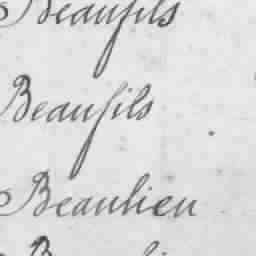 Beaufils
Beaufils
Beaulieu